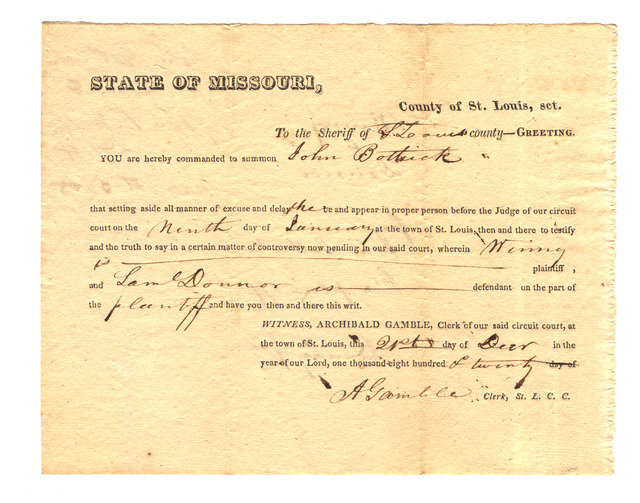 STATE OF MISSOURI,
County of St. Louis, sct.
To the Sheriff of St Louis county—GREETING.
YOU are hereby commanded to summon John Bostick
that setting aside all manner of excuse and delay he be and appear in proper person before the Judge of our circuit
court on the Ninth day of January at the town of St. Louis, then and there to testify
and the truth to say in a certain matter of controversy now pending in our said court, wherein Winny
is plaintiff,
and Saml Donnor is defendant on the part of
the plantff and have you then and there this writ.
WITNESS, ARCHIBALD GAMBLE, Clerk of our said circuit court, at
the town of St. Louis, this 21st day of Decr in the
year of our Lord, one thousand eight hundred & twenty day of
A Gamble Clerk, St. L. C. C.